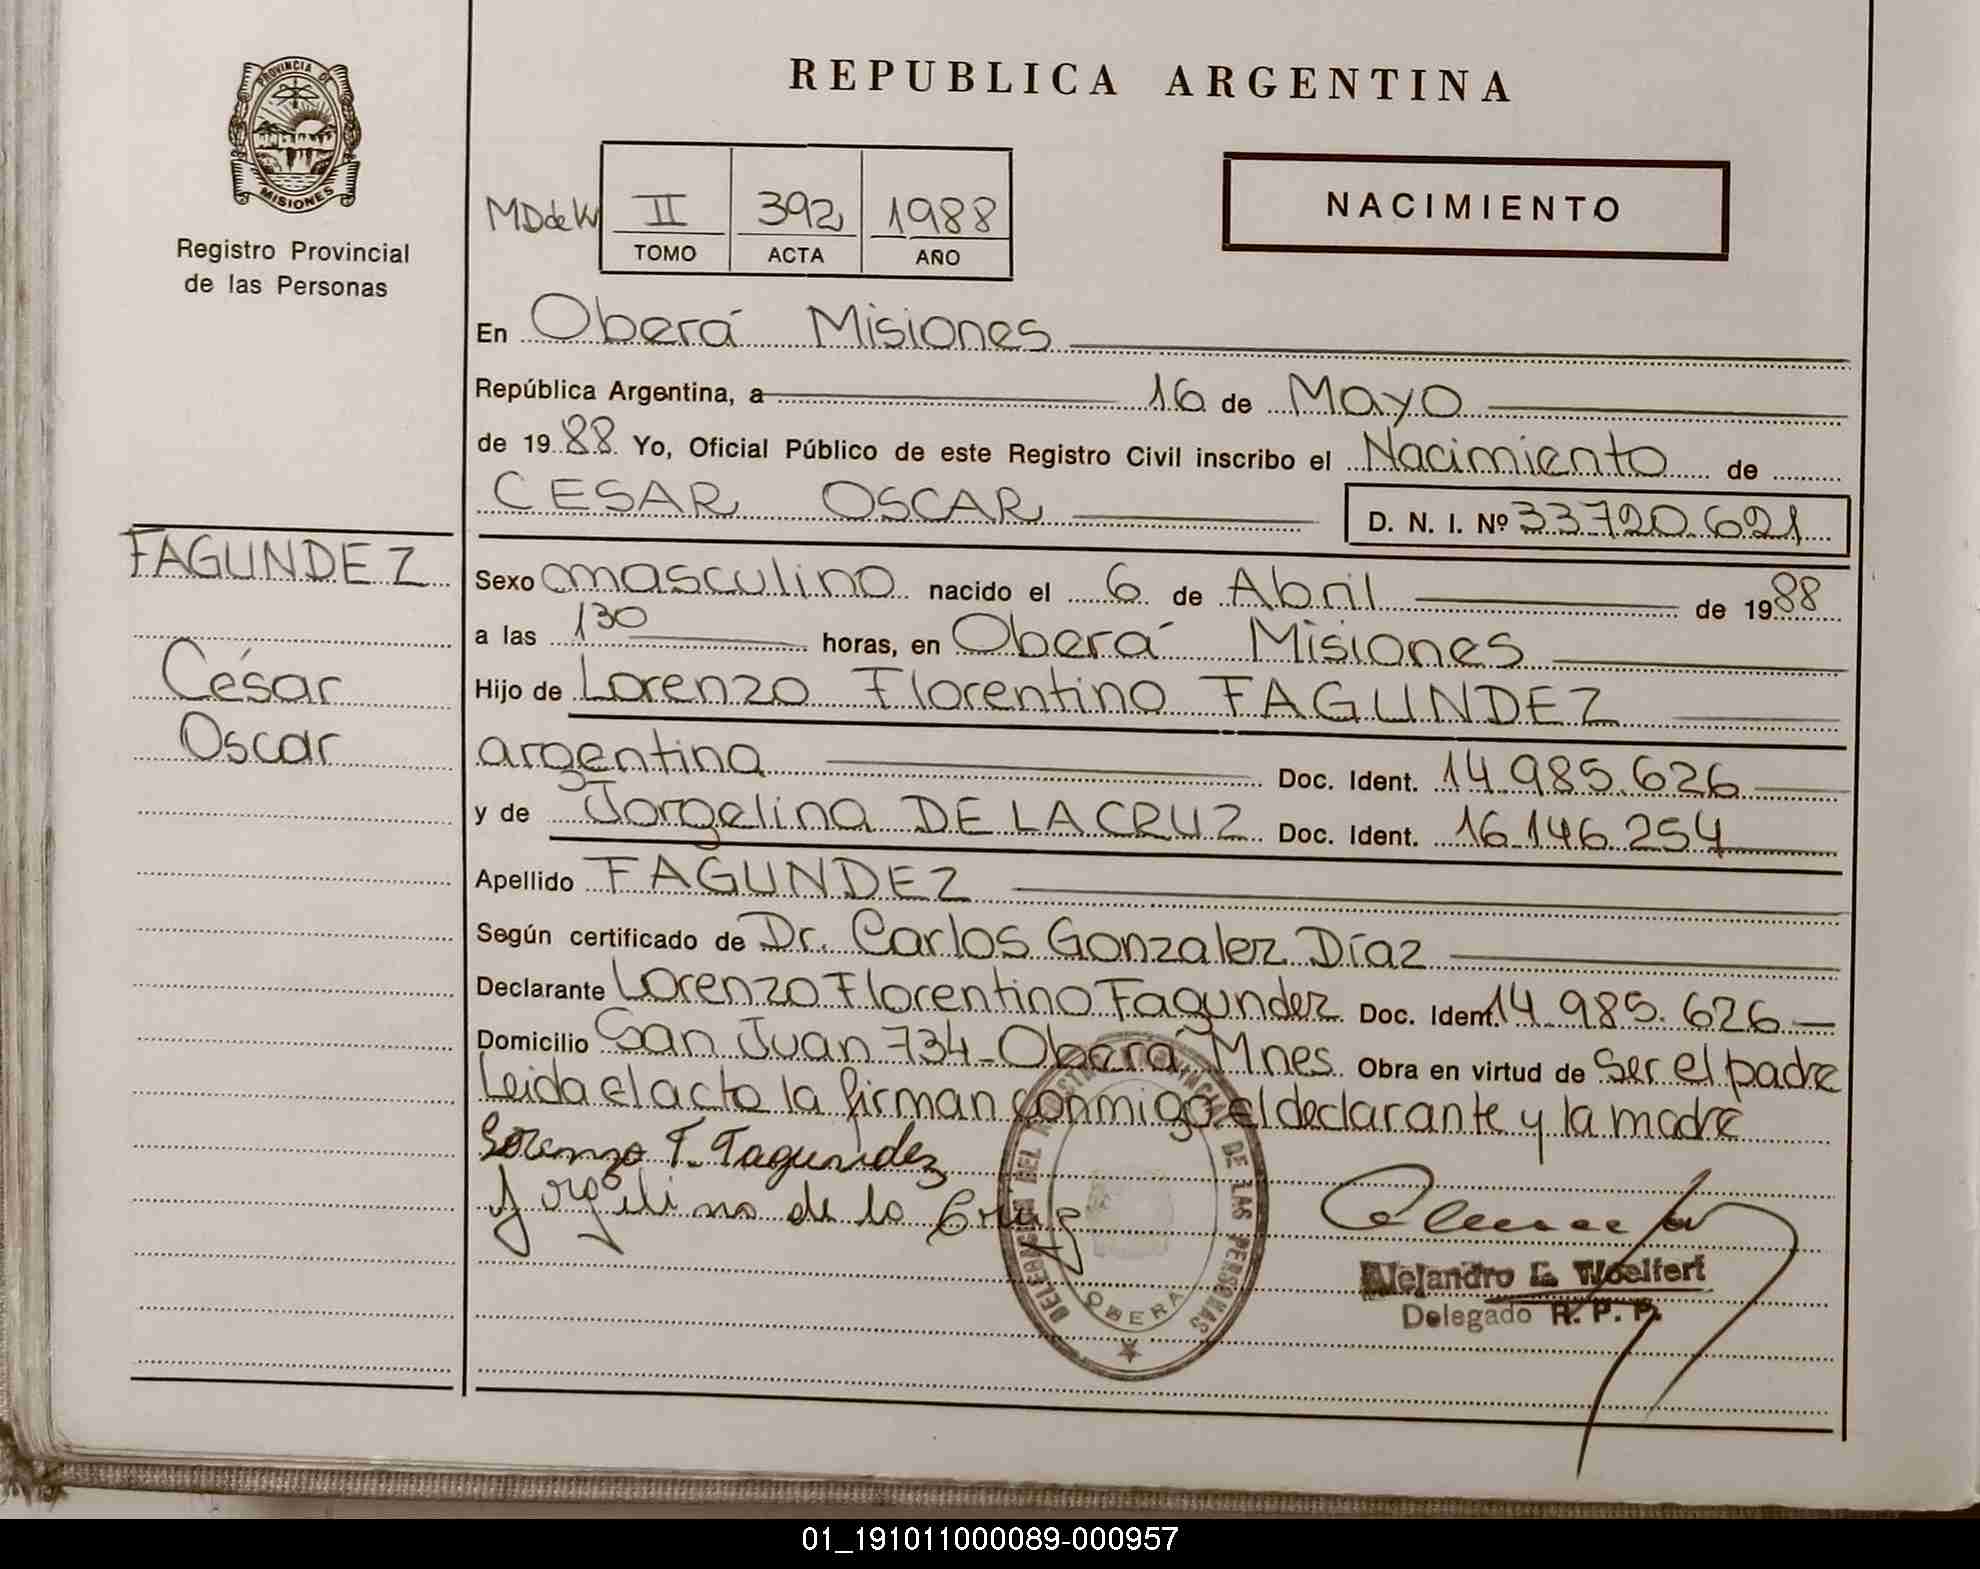 PROVINCIA DE
MISIONES
Registro Provincial
de las Personas
REPUBLICA ARGENTINA
MDdeW
II 392 1988
TOMO ACTA AÑO
NACIMIENTO
En Oberá Misiones
República Argentina, a 16 de Mayo
de 1988 Yo, Oficial Público de este Registro Civil inscribo el Nacimiento de
CESAR OSCAR D. N. I. Nº 33.720.621
FAGUNDEZ
César
Oscar
Sexo masculino nacido el 6 de Abril de 1988
a las 130 horas, en Oberá Misiones
Hijo de Lorenzo Florentino FAGUNDEZ
argentina Doc. Ident. 14.985.626
y de Jorgelina DE LA CRUZ Doc. Ident. 16.146.254
Apellido FAGUNDEZ
Según certificado de Dr. Carlos Gonzalez Díaz
Declarante Lorenzo Florentino Fagundez Doc. Ident. 14.985.626
Domicilio San Juan 734-Oberá, Mnes. Obra en virtud de Ser el padre
Leida el acto la firman conmigo el declarante y la madre
Lorenzo F. Fagundez
Jorgelina de la Cruz
DELEGACION DEL REGISTRO PROVINCIAL DE LAS PERSONAS
OBERA
Alejandro E. Woelfert
Delegado R. P. P.
01_191011000089-000957